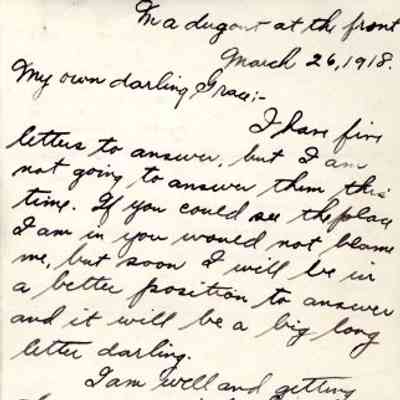 In a dugout at the front
March 26, 1918.
My own darling Grace:-
I have five
letters to answer, but I am
not going to answer them this
time. If you could see the place
I am in you would not blame
me, but soon I will be in
a better position to answer
and it will be a big long
letter darling.
I am well and getting